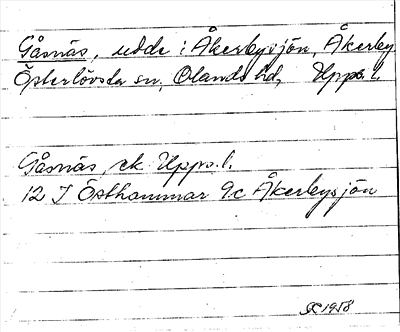 Gåsnäs, udde i Åkerbysjön, Åkerby
Österlövsta sn, Olands hd, Upps. l.
Gåsnäs, ek. Upps. l.
12 I Östhammar 9c Åkerbysjön
1958